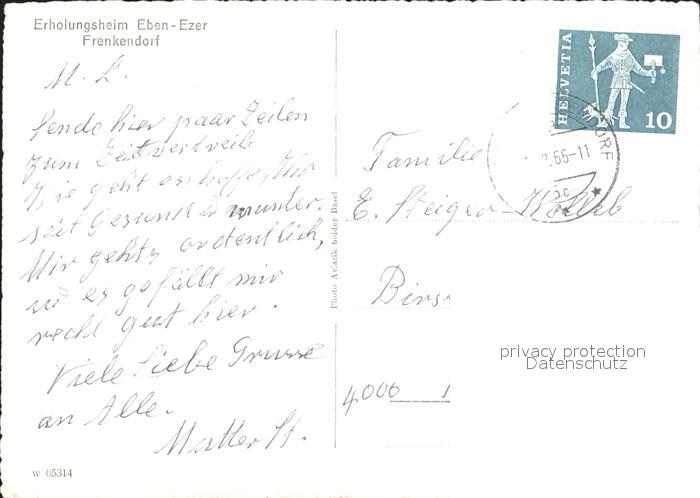 Erholungsheim Eben-Ezer
Frenkendorf
M. L.
Sende hier paar Zeilen
zum Zeitvertreib
Wie geht es hoffe, Ihr
seit Gesund u munter.
Mir gehts ordentlich,
und es gefällt mir
recht gut hier.
Viele liebe Grüsse
an Alle.
Mutter St.
w 05314
Photo Aviatik beider Basel
HELVETIA
10
DORF
.66-11
Familie
E. Steiger-Wolleb
Birs
4000
privacy protection
Datenschutz